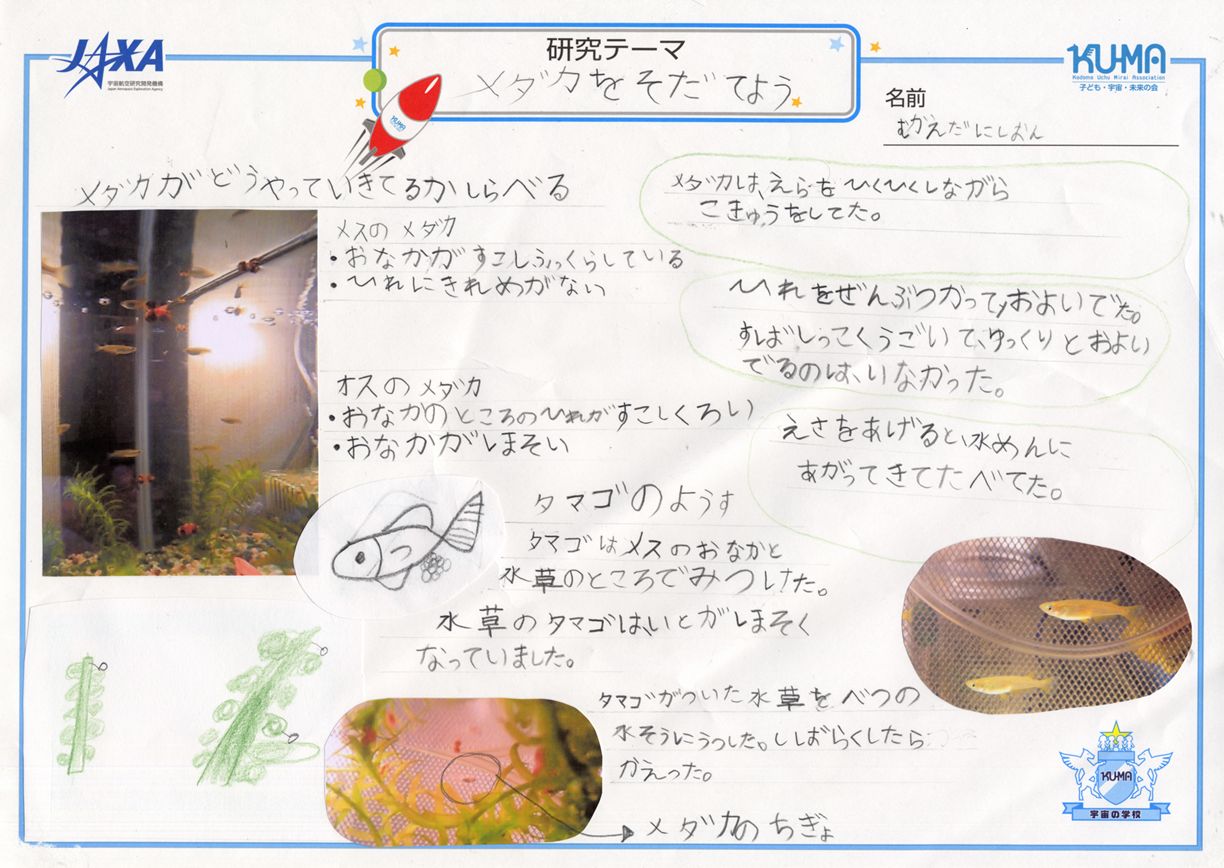 JAXA
宇宙航空研究開発機構
Japan Aerospace Exploration Agency
研究テーマ
メダカをそだてよう
KUMA
Kodomo Uchu Mirai Association
子ども・宇宙・未来の会
名前
むかえだにしおん
KUMA
メダカがどうやっていきてるかしらべる
メスのメダカ
・おなかがすこしふっくらしている
・ひれにきれめがない
オスのメダカ
・おなかのところのひれがすこしくろい
・おなかがほそい
メダカは、えらをひくひくしながら
こきゅうをしてた。
ひれをぜんぶつかって、およいでた。
すばしっこくうごいて、ゆっくりとおよい
でるのは、いなかった。
えさをあげると、水めんに
あがってきてたべてた。
タマゴのようす
タマゴはメスのおなかと
水草のところでみつけた。
水草のタマゴは、いとがほそく
なっていました。
タマゴがついた水草をべつの
水そうにうつした。しばらくしたら
かえった。
メダカのちぎょ
KUMA
宇宙の学校